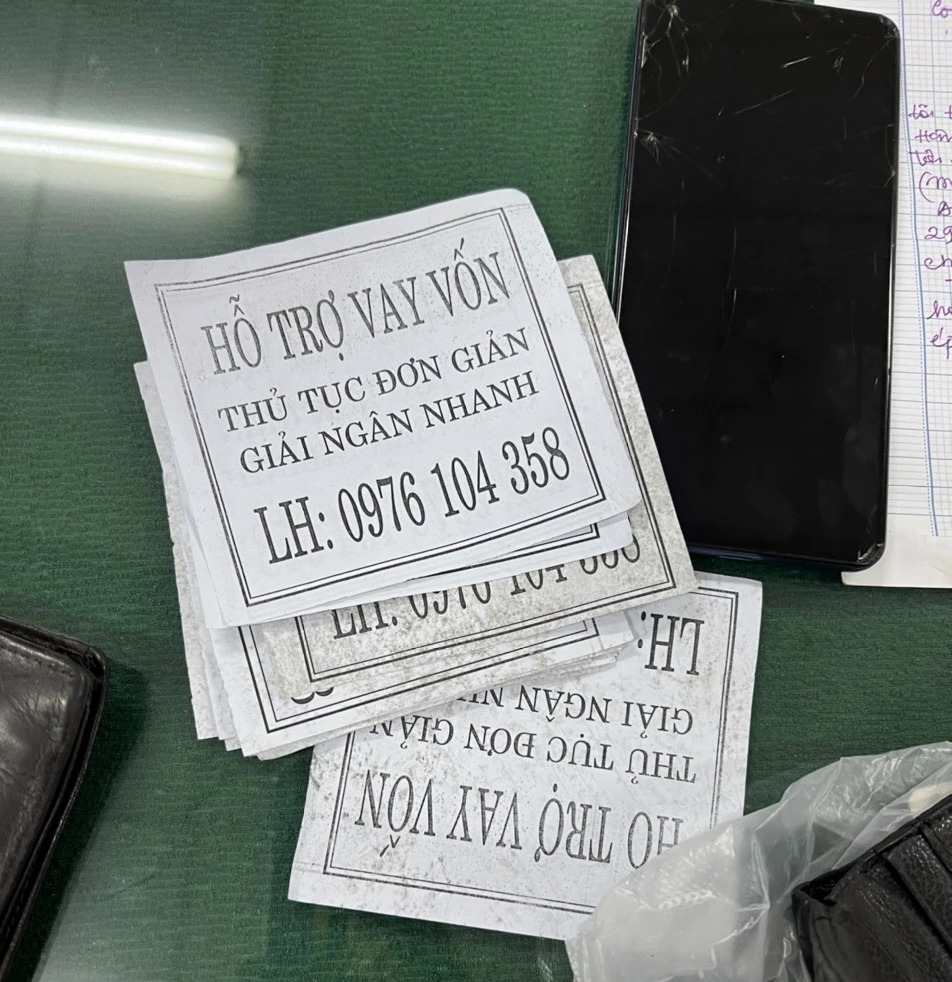 HỖ TRỢ VAY VỐN
THỦ TỤC ĐƠN GIẢN
GIẢI NGÂN NHANH
LH: 0976 104 358
LH: 0976 104 358
LH:
GIẢI NGÂN
THỦ TỤC ĐƠN GIẢN
HỖ TRỢ VAY VỐN
29